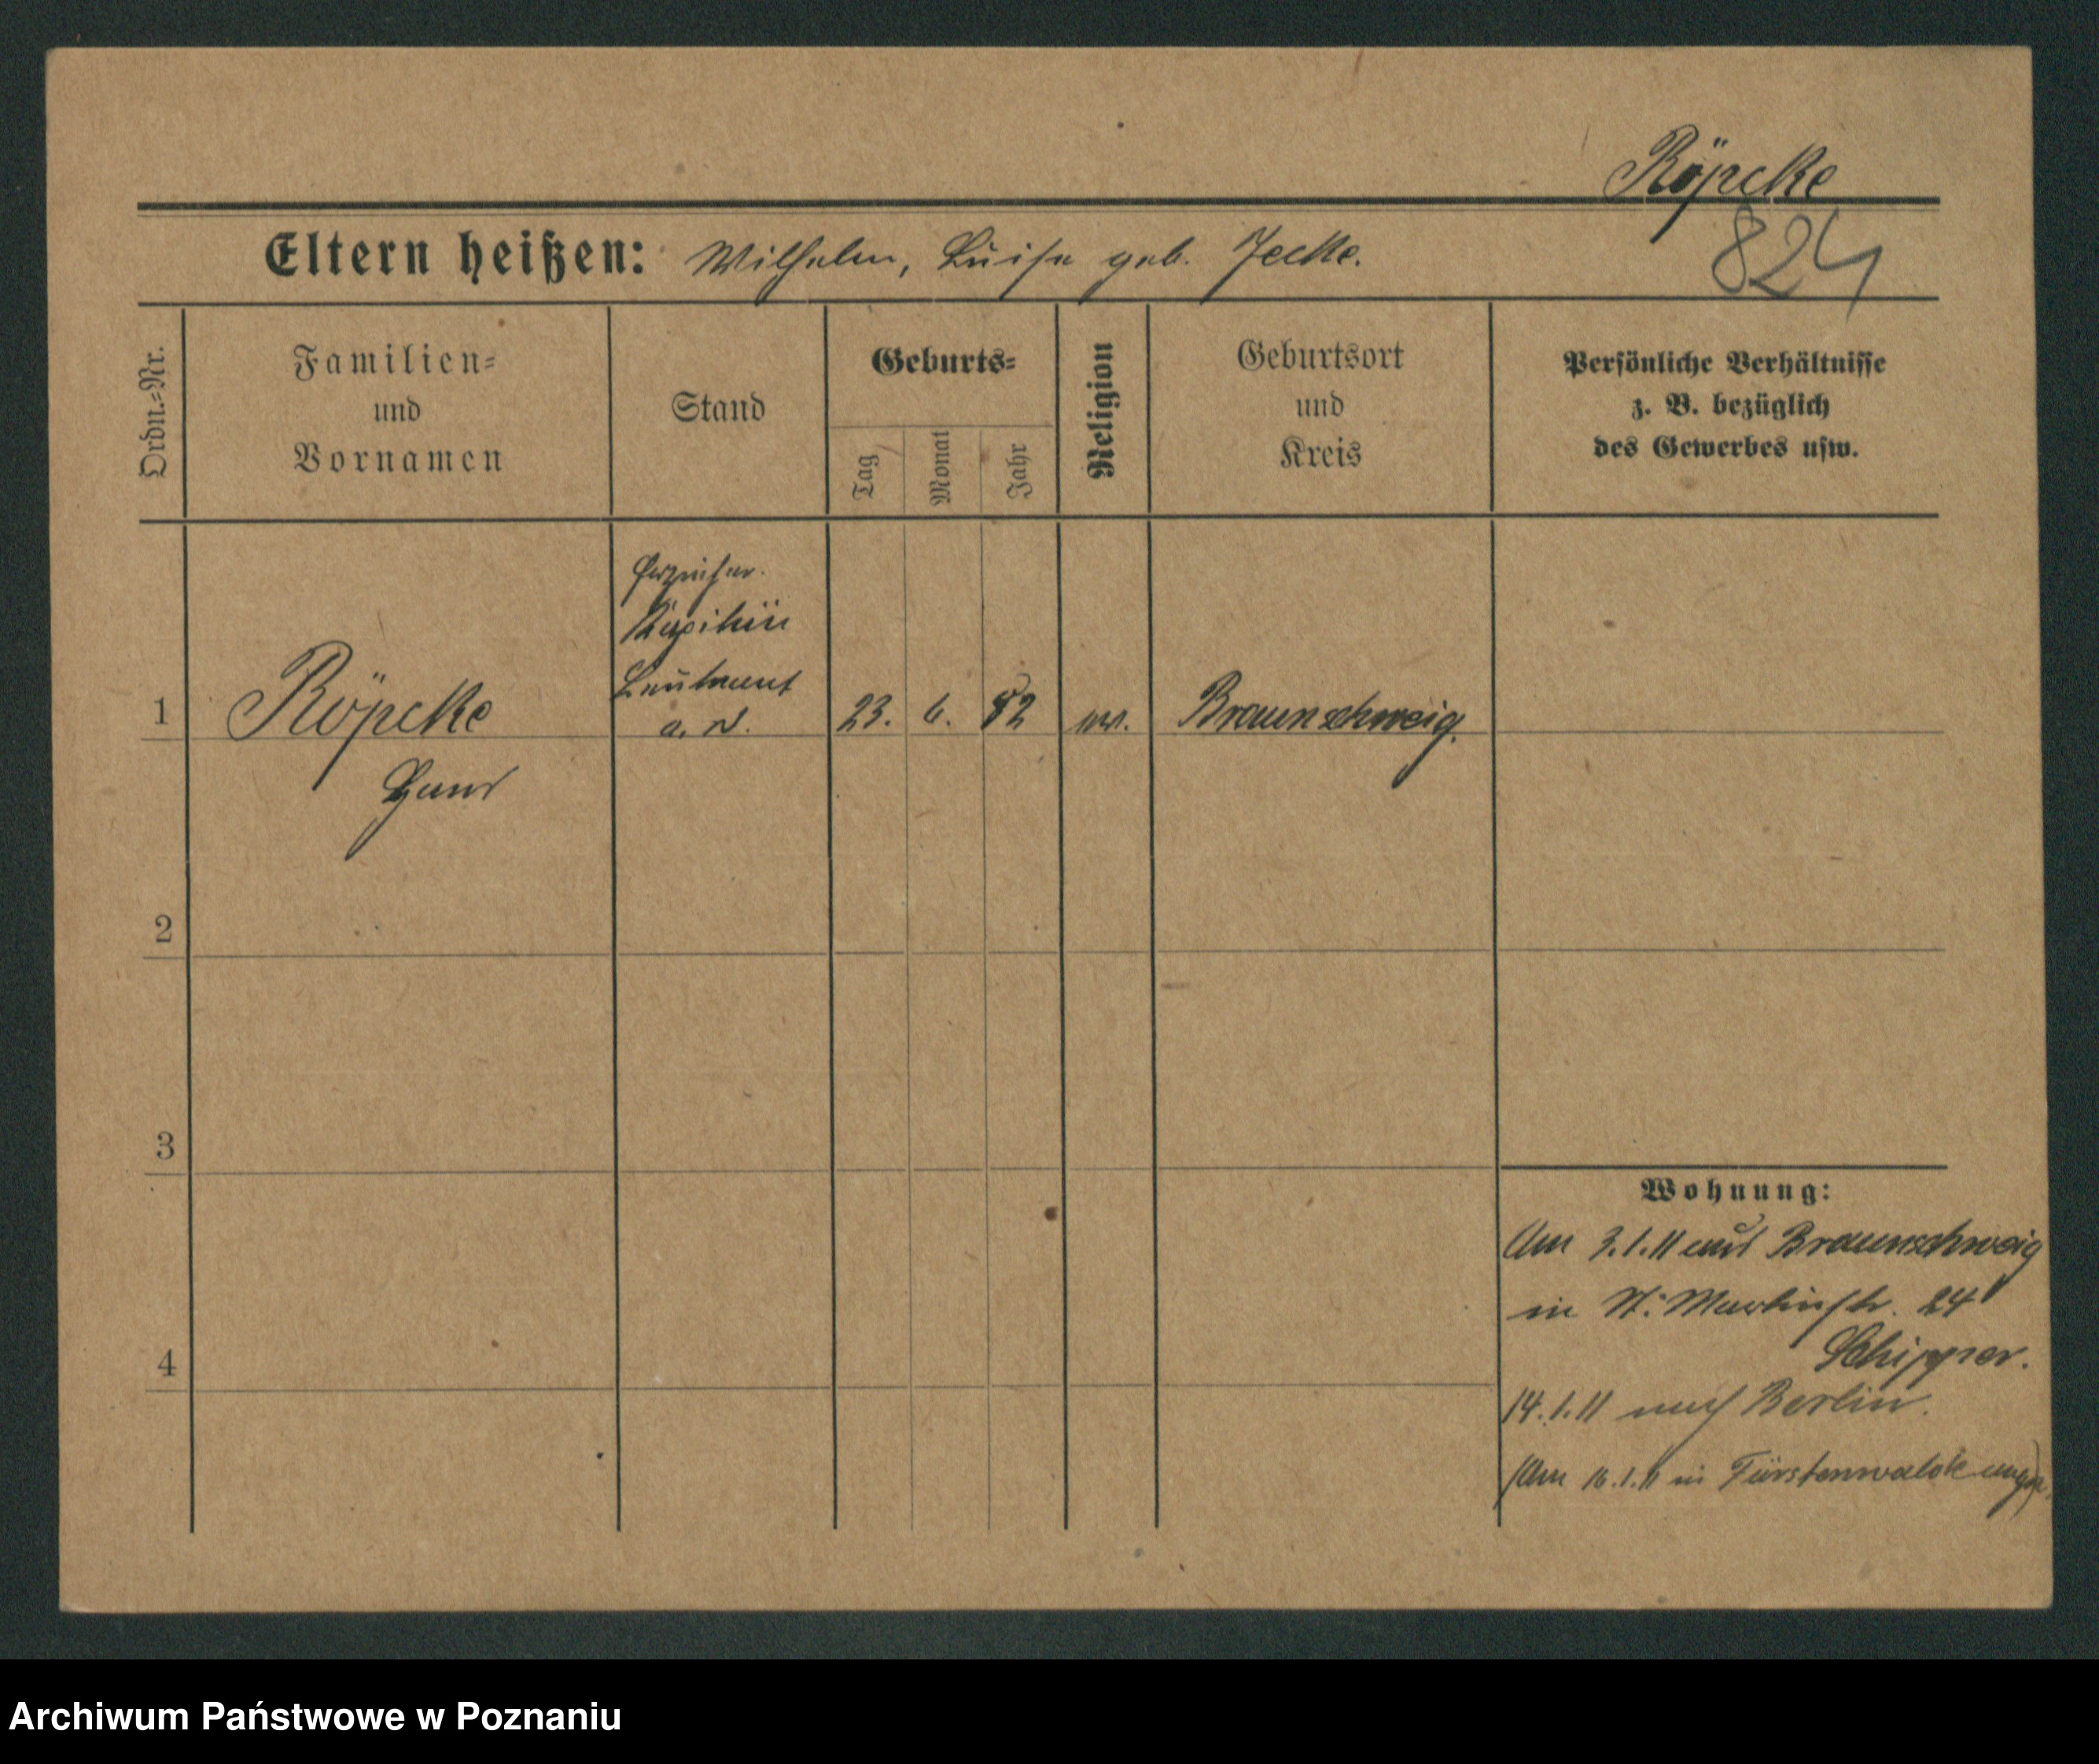 Röpcke
824
Eltern heißen: Wilhelm, Luise geb. Jecke.
Ordn.-Nr.
Familien-
und
Vornamen
Stand
Geburts-
Tag
Monat
Jahr
Religion
Geburtsort
und
Kreis
Persönliche Verhältnisse
z. B. bezüglich
des Gewerbes usw.
Erzieher.
Leutnant
a. D.
1
Röpcke
23. 6. 82
ev.
Braunschweig.
Hans
2
3
4
Wohnung:
Am 3.1.11 aus Braunschweig
in St. Martinstr. 24
Schipper.
14.1.11 nach Berlin.
(Am 16.1.11 in Fürstenwalde
Archiwum Państwowe w Poznaniu